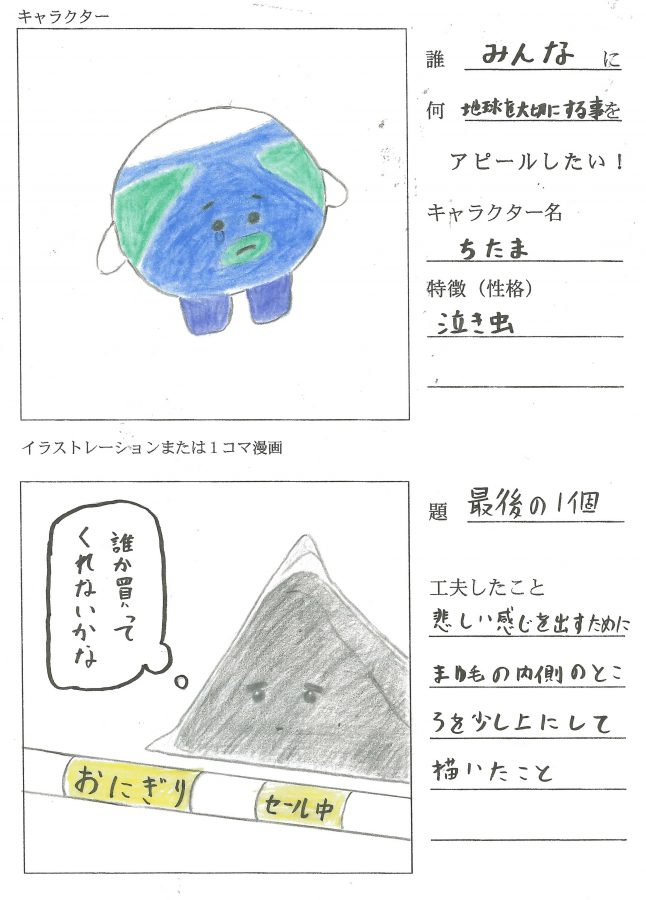 キャラクター
誰 みんな に
何 地球を大切にする事を
アピールしたい！
キャラクター名
ちたま
特徴（性格）
泣き虫
イラストレーションまたは１コマ漫画
誰か買って
くれないかな
おにぎり
セール中
題 最後の１個
工夫したこと
悲しい感じを出すために
まゆ毛の内側のとこ
ろを少し上にして
描いたこと